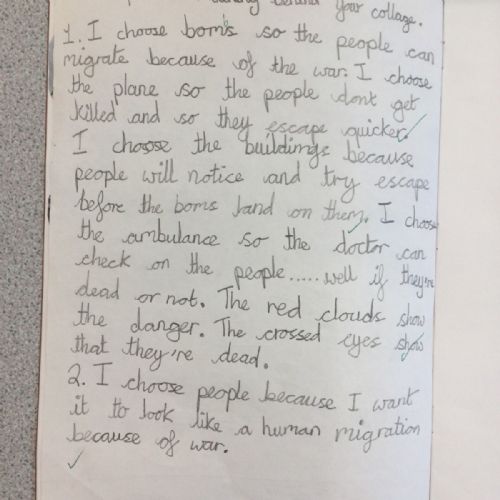 behind your collage.
1. I choose bom's so the people can
migrate because of the war. I choose
the plane so the people dont get
killed and so they escape quicker.
I choose the buildings because
people will notice and try escape
before the boms land on them. I choose
the ambulance so the doctor can
check on the people.....well if they're
dead or not. The red clouds show
the danger. The crossed eyes show
that they're dead.
2. I choose people because I want
it to look like a human migration
because of war.